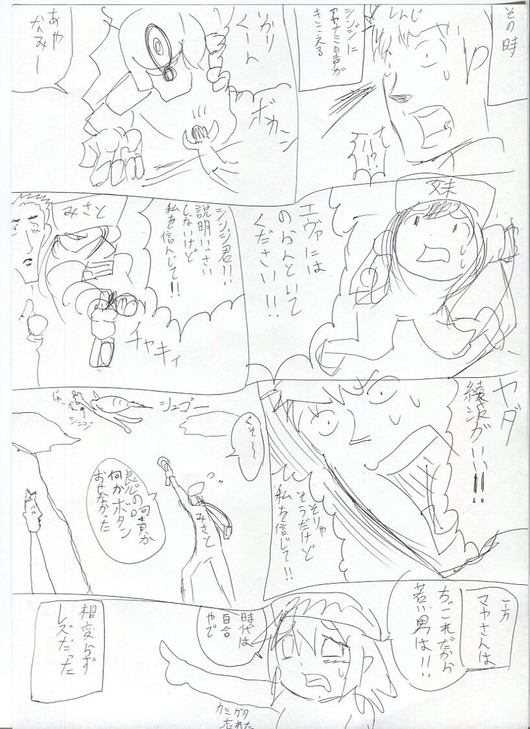 その時
しんじ
シンジに
アヤナミの声が
きこえる
!?
いかりくーん
ボカン
あやなみー
妹
エヴァには
のらんといて
ください!!
シンジ君!!
説明いっさい
しないけど
私を信じて!!
みさと
チャキィ
ヤダ
綾波がいい!!
そりゃ
そうだけど
私を信じて!!
くそ〜
シュゴー
シンジ
みさと
良心の呵責か
何かボタン
おせなかった
一方
マヤさんは
ちっこれだから
若い男は!!
時代は
百合
やで
相変らず
レズだった